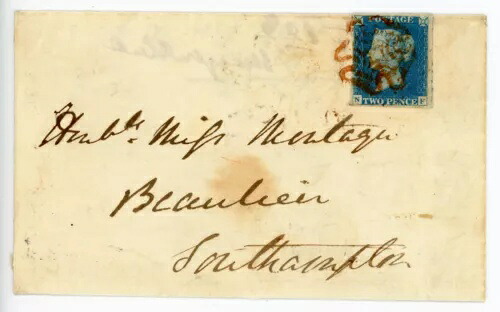 POSTAGE
TWO PENCE
Honble. Miss Montagu
Beaulieu
Southampton